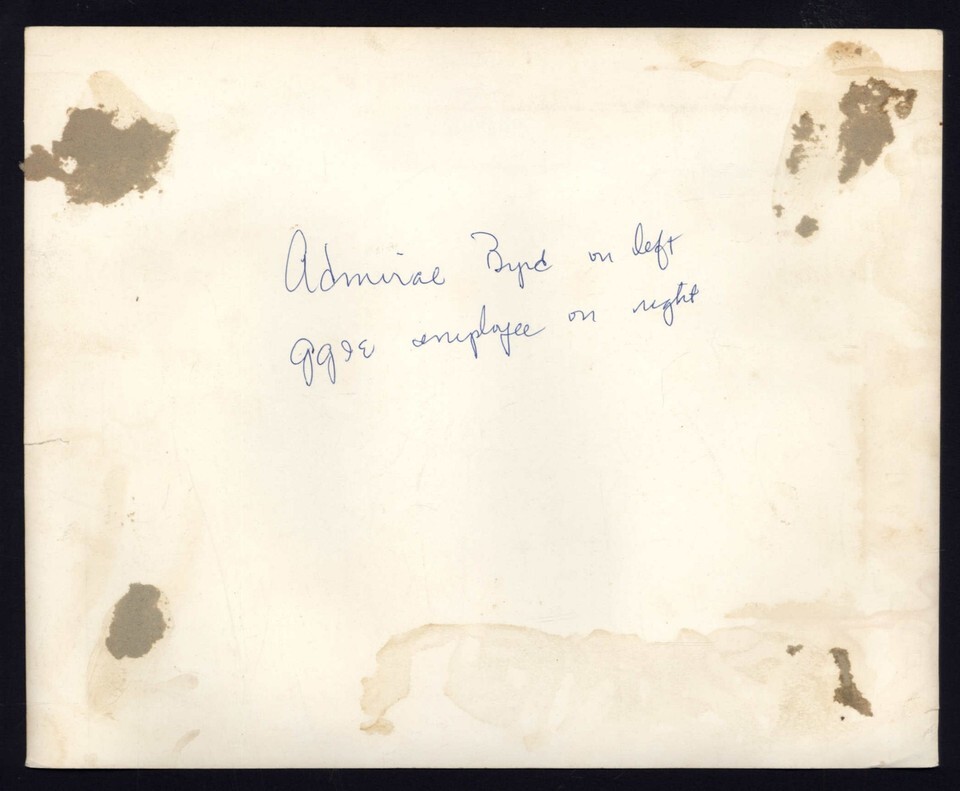 Admiral Byrd on left
employee on right